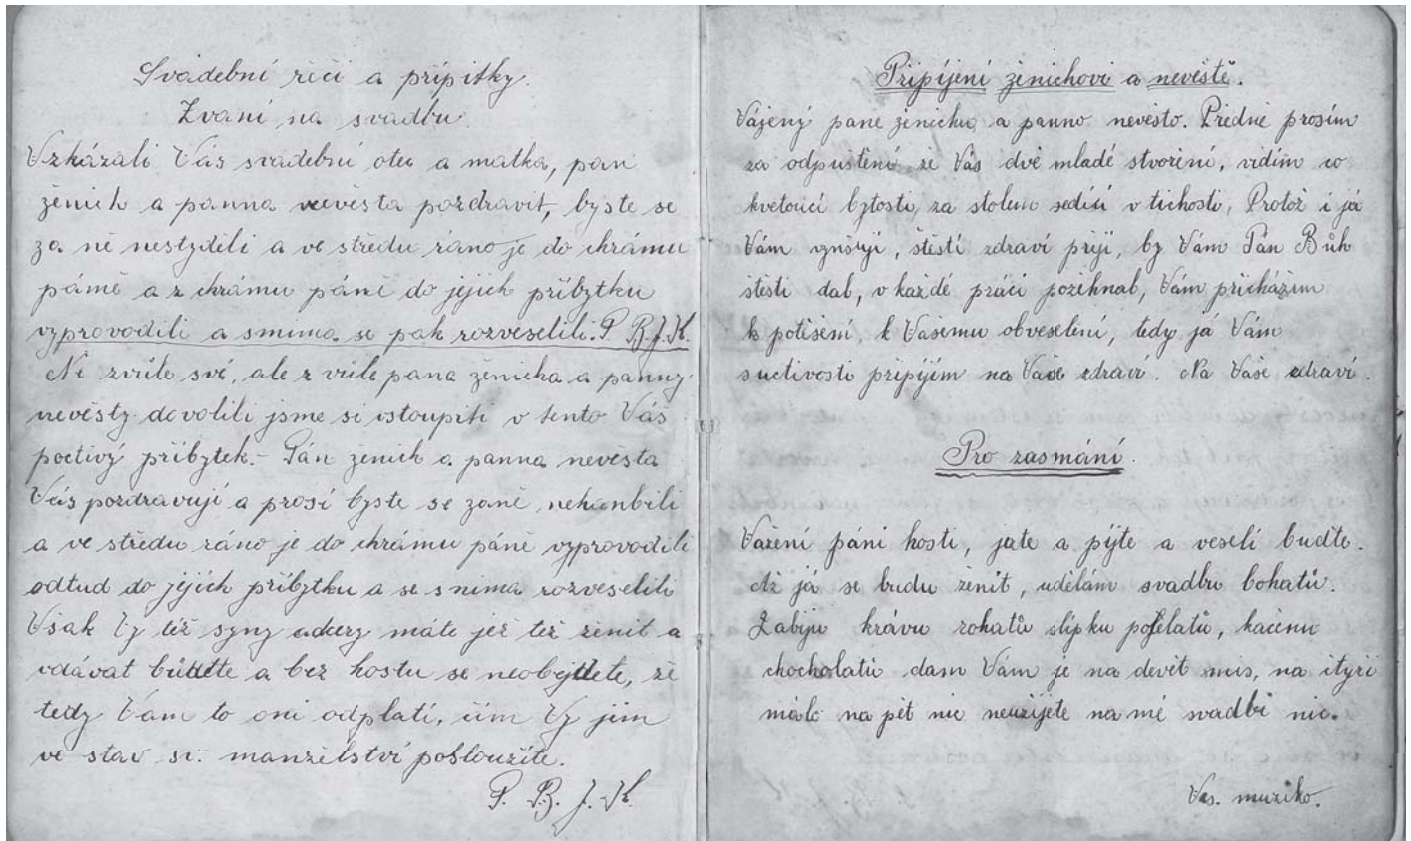 Svadební řeči a přípitky.
Zvaní na svadbu.
Vzkázali Vás svadební otec a matka, pan
ženich a panna nevěsta pozdravit, byste se
za ně nestyděli a ve středu ráno je do chrámu
páně a z chrámu páně do jejich příbytku
vyprovodili a s nima se pak rozveselili. P. B. J. K.
Ne z vůle své, ale z vůle pana ženicha a panny
nevěsty dovolili jsme si vstoupiti v tento Váš
poctivý příbytek. - Pán ženich a panna nevěsta
Vás pozdravují a prosí byste se zaně nehanbili
a ve středu ráno je do chrámu páně vyprovodili
odtud do jejich příbytku a se s nima rozveselili
Však Vy též syny a dcery máte jež též ženit a
vdávat budete a bez hostu se neobejdete, že
tedy Vám to oni odplatí, čím Vy jim
ve stav sv. manželství posloužíte.
P. B. J. K.
Připíjení ženichovi a nevěstě.
Vážený pane ženichu a panno nevěsto. Předně prosím
za odpuštění že Vás dvě mladé stvoření, vidím co
kvetoucí bytosti, za stolem sedíci v tichosti, Protož i já
Vám vynšuji, štěstí zdraví přeji, by Vám Pán Bůh
štěstí dal, v každé práci požehnal, Vám přicházím
k potěšení, k Vašemu obveselení, tedy já Vám
s uctivostí připíjím na Vaše zdraví. Na Vaše zdraví.
Pro zasmání.
Vážení páni hosti, jezte a pijte a veselí buďte.
Až já se budu ženit, udělám svadbu bohatů.
Zabiju krávu rohatů slípku pofelatů, kačenu
chocholatů dam Vám je na devět mis, na čtyři
málo na pět nic neuzijete na mé svadbě nic.
Vas. muziko.